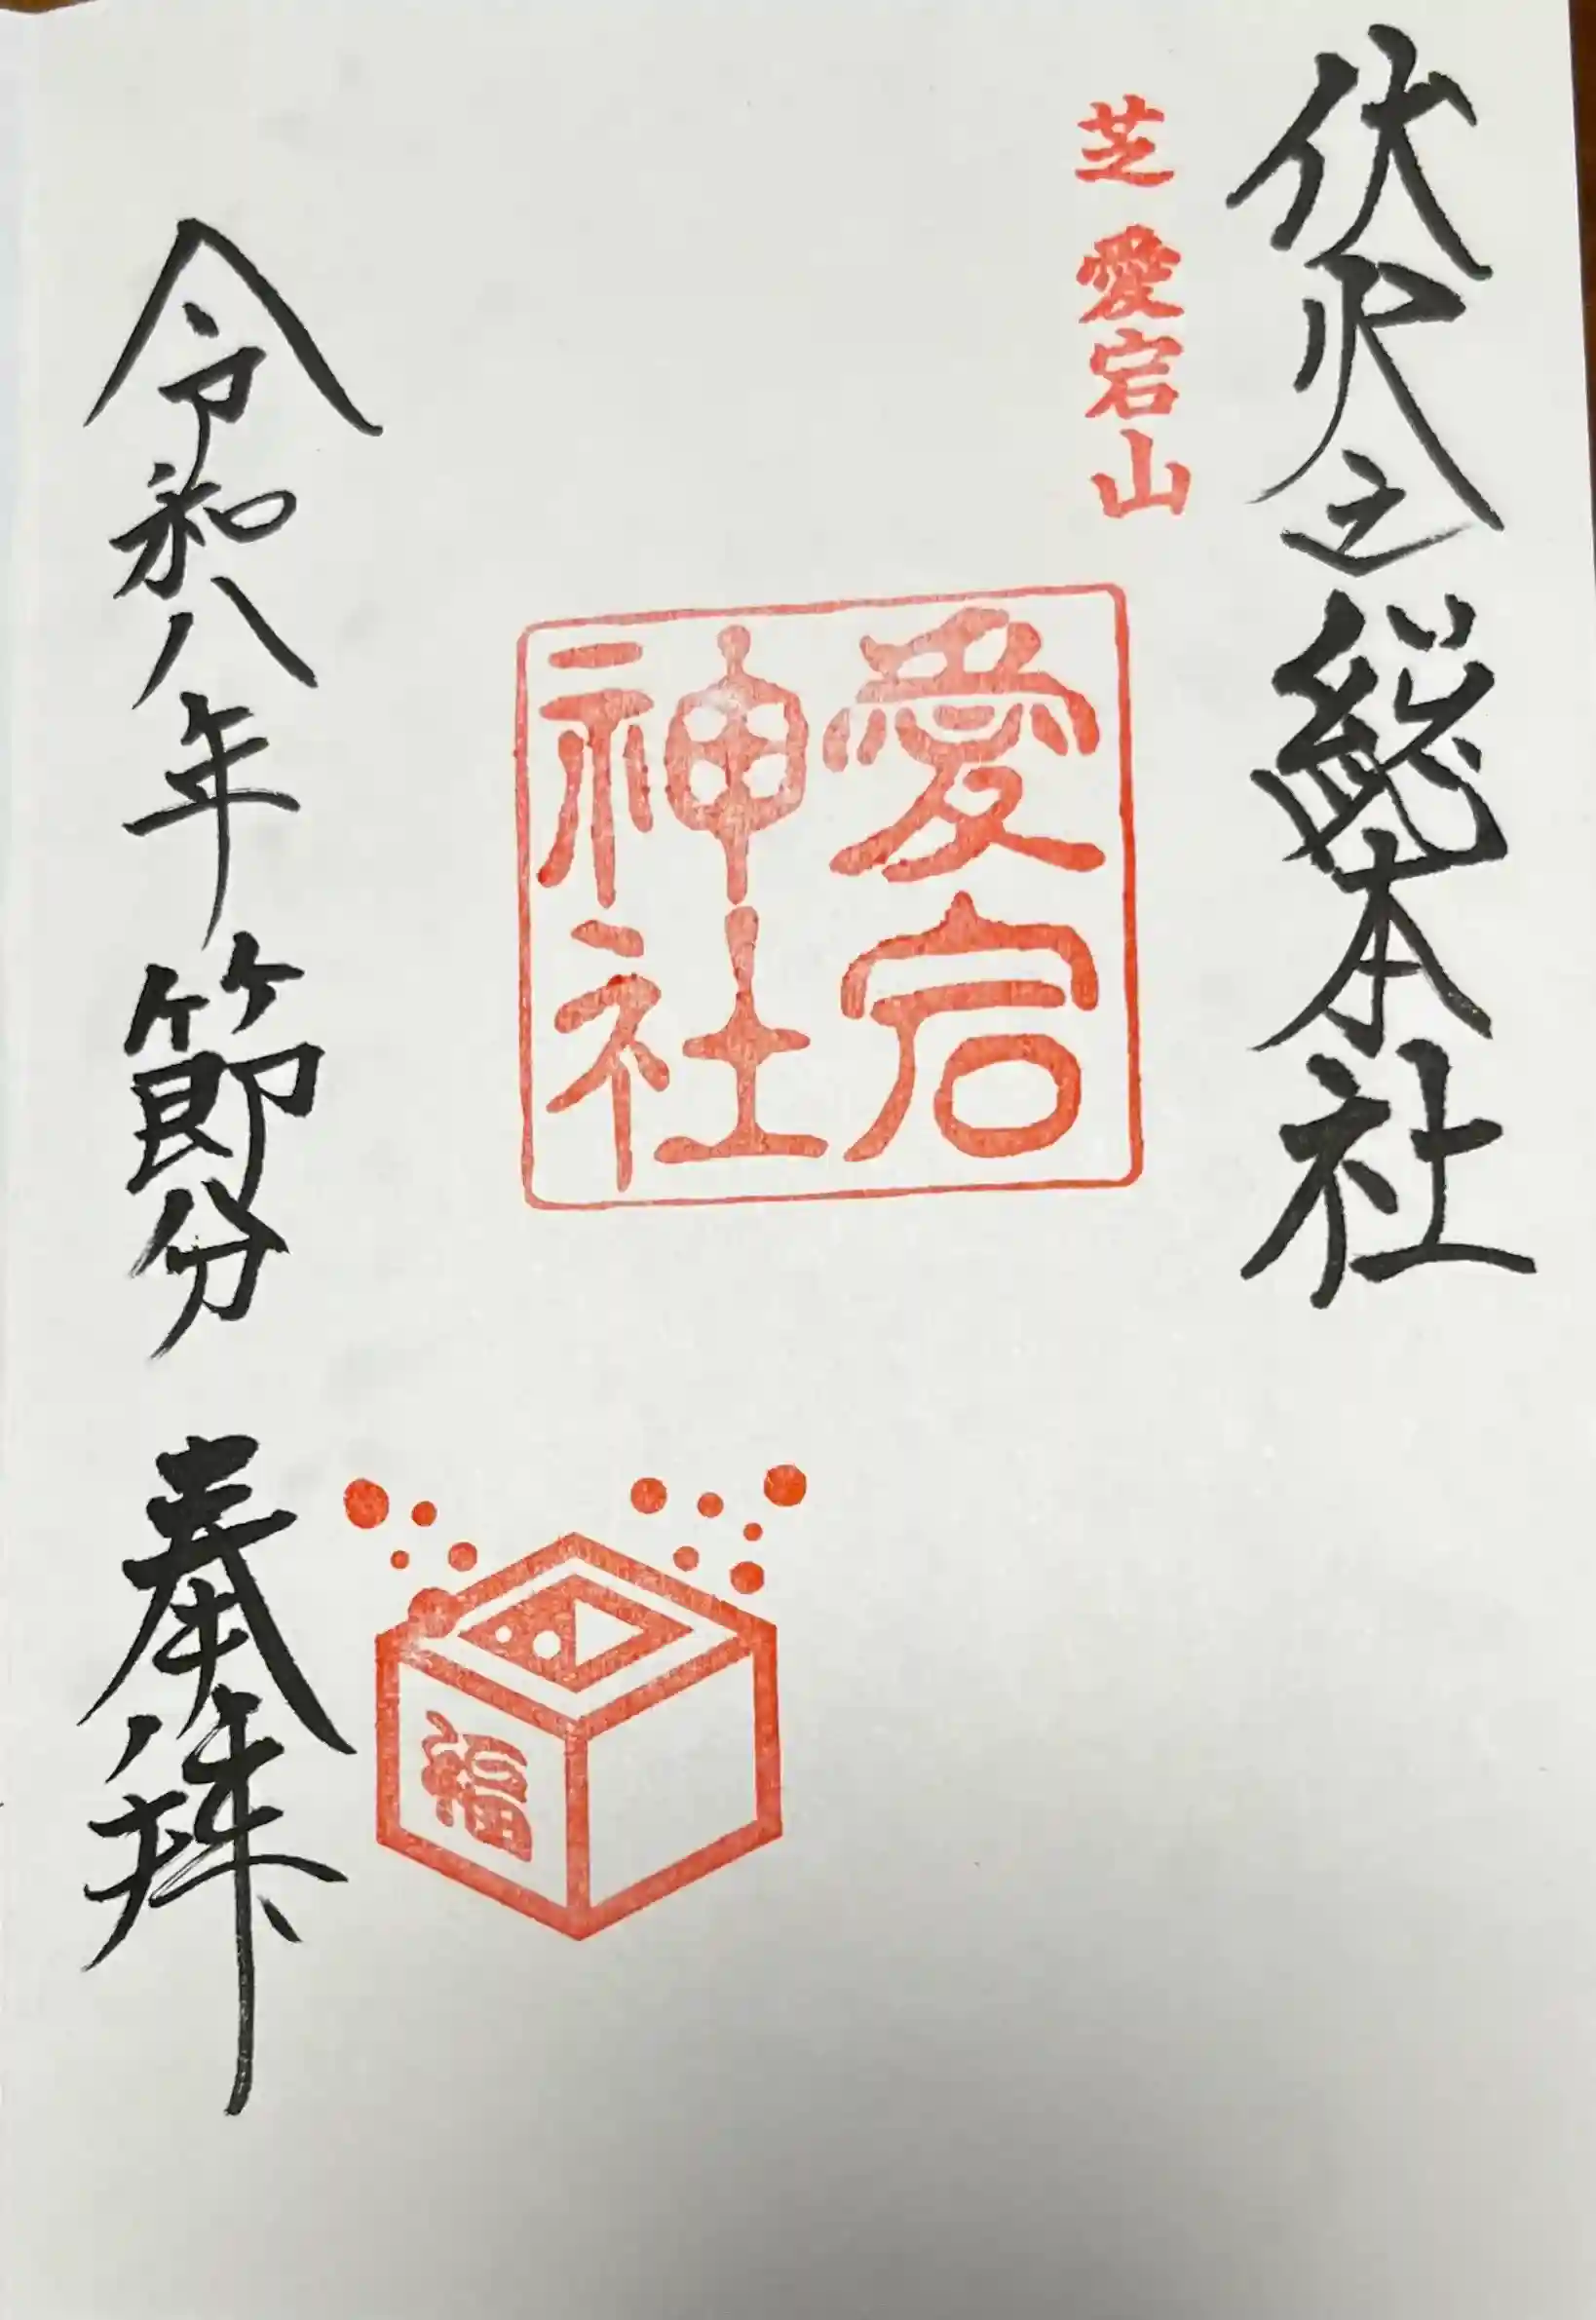 伏火之総本社
芝 愛宕山
愛宕
神社
福
令和八年 節分 奉拝